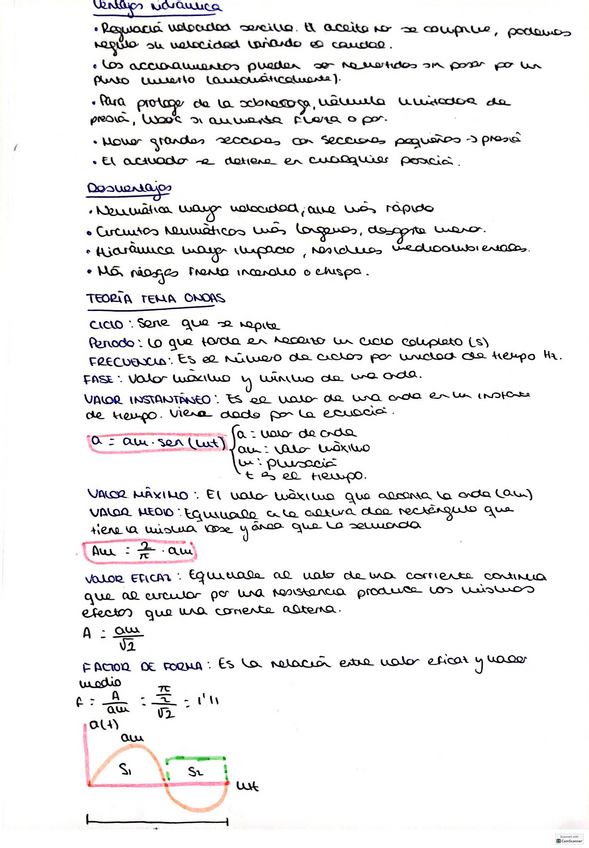 Ventajas hidráulica
• Regulación velocidad sencilla. El aceite no se comprime, podemos
regular su velocidad variando el caudal.
• Los accionamientos pueden ser remetidos sin pasar por un
punto muerto (automáticamente).
• Para protege de la sobrecarga, válvula limitadora de
presión, si aumenta fuerza o par.
• Mover grandes secciones con secciones pequeñas → presió
• El actuador se detiene en cualquier posición.
Desventajas
• Neumática mayor velocidad, que más rápido
• Circuitos Neumáticos más desgaste menor.
• Hidráulica mayor impacto, residuos medioambientales.
• Más riesgos frente incendio o chispa.
TEORÍA TEMA ONDAS
CICLO : Serie que se repite
Periodo : Lo que tarda en recorrer un ciclo completo (s)
FRECUENCIA : Es el número de ciclos por unidad de tiempo Hz.
FASE : Valor máximo y mínimo de una onda.
VALOR INSTANTÁNEO : Es el valor de una onda en un instante
de tiempo. Viene dado por la ecuación.
a = am · sen (wt) { a = valor de onda
am = valor máximo
w : pulsación
t es el tiempo.
VALOR MÁXIMO : El valor máximo que alcanza la onda (am)
VALOR MEDIO : Equivale a la altura del rectángulo que
tiene la misma base y área que la semionda
Am = 2/π · am
VALOR EFICAZ : Equivale al valor de una corriente continua
que al circular por una resistencia produce los mismos
efectos que una corriente alterna.
A = am/√2
FACTOR DE FORMA : Es la relación entre valor eficaz y valor
medio
f = A/am = π/2/√2 = 1'11
a(t)
am
S1 S2
wt
Scanned with
CamScanner